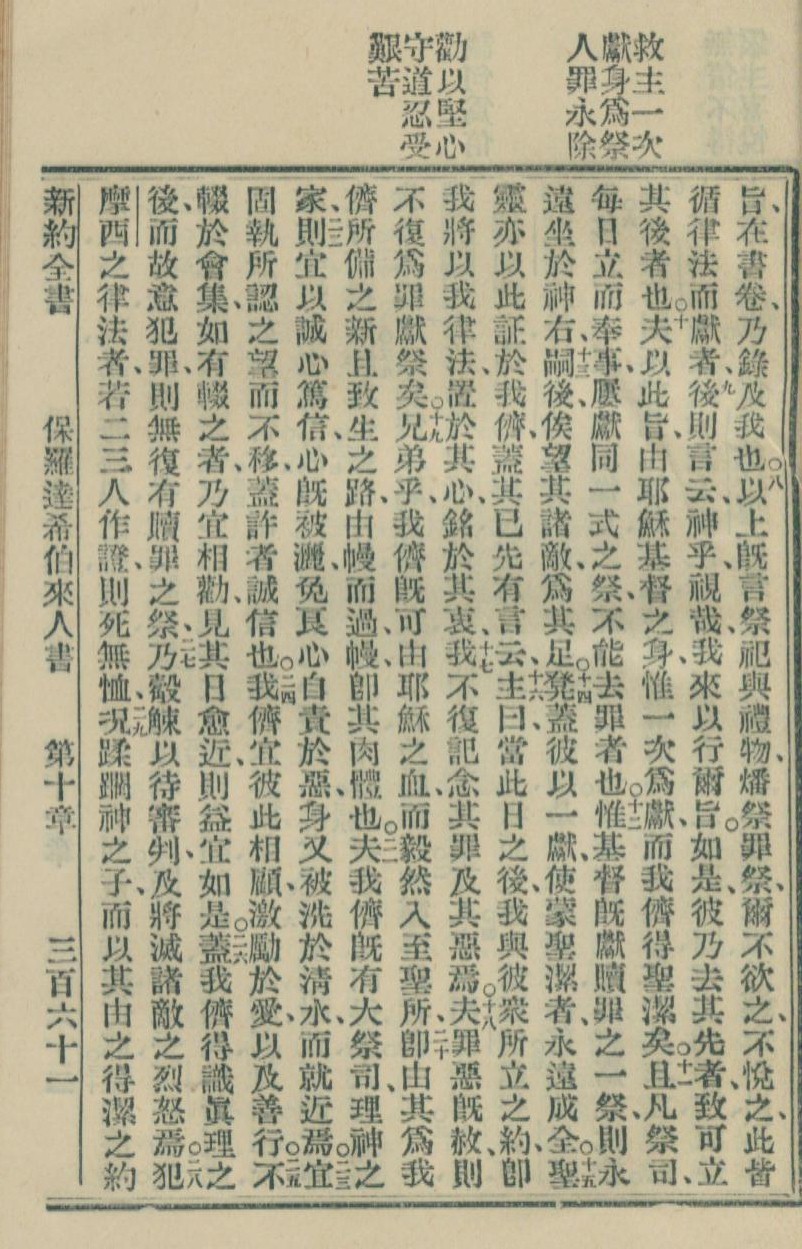 救主一次
獻身爲祭
人罪永除
勸以堅心
守道忍受
艱苦
旨在書卷、乃錄及我也、○八以上旣言祭祀與禮物、燔祭罪祭、爾不欲之、不悅之、此皆
循律法而獻者、九後則言云、神乎、視哉、我來以行爾旨。如是、彼乃去其先者、致可立
其後者也。○十夫以此旨、由耶穌基督之身、惟一次爲獻、而我儕得聖潔矣。○十一且凡祭司、
每日立而奉事、屢獻同一式之祭、不能去罪者也。○十二惟基督旣獻贖罪之一祭、則永
遠坐於神右、十三嗣後、俟望其諸敵、爲其足凳。○十四蓋彼以一獻、使蒙聖潔者、永遠成全。○十五聖
靈亦以此証於我儕、蓋其已先有言云、十六主曰、當此日之後、我與彼衆所立之約、卽
我將以我律法、置於其心、銘於其衷、十七我不復記念其罪及其惡焉。○十八夫罪惡旣赦、則
不復爲罪獻祭矣。○十九兄弟乎、我儕旣可由耶穌之血、而毅然入至聖所、二十卽由其爲我
儕所備之新且致生之路、由幔而過、幔卽其肉體也。○二一夫我儕旣有大祭司、理神之
家、二二則宜以誠心篤信、心旣被灑、免良心自責於惡、身又被洗於清水、而就近焉。○二三宜
固執所認之望而不移、蓋許者誠信也。○二四我儕宜彼此相顧、激勵於愛、以及善行。○二五不
輟於會集、如有輟之者、乃宜相勸、見其日愈近、則益宜如是。○二六蓋我儕得識眞理之
後、而故意犯罪、則無復有贖罪之祭、二七乃觳觫以待審判、及將滅諸敵之烈怒焉。○二八犯
摩西之律法者、若二三人作證、則死無恤、二九况蹂躪神之子、而以其由之得潔之約
新約全書 保羅達希伯來人書 第十章 三百六十一